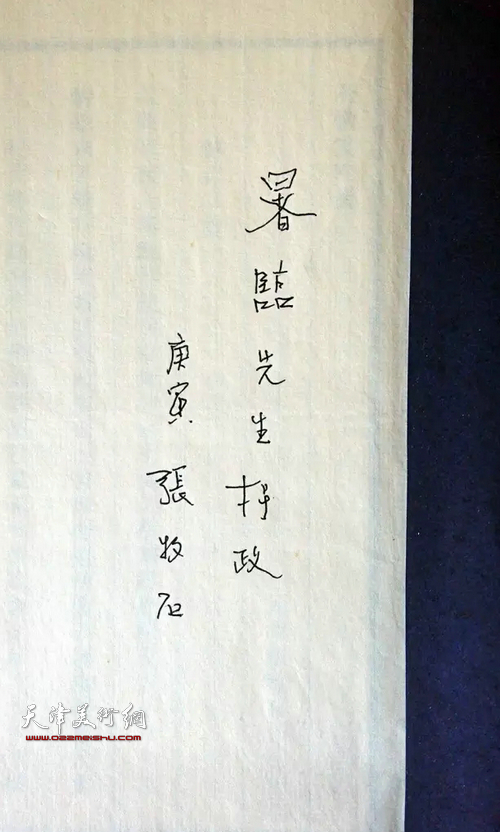 暑臨先生抨政
庚寅 張牧石
天津美術網
www.022meishu.com